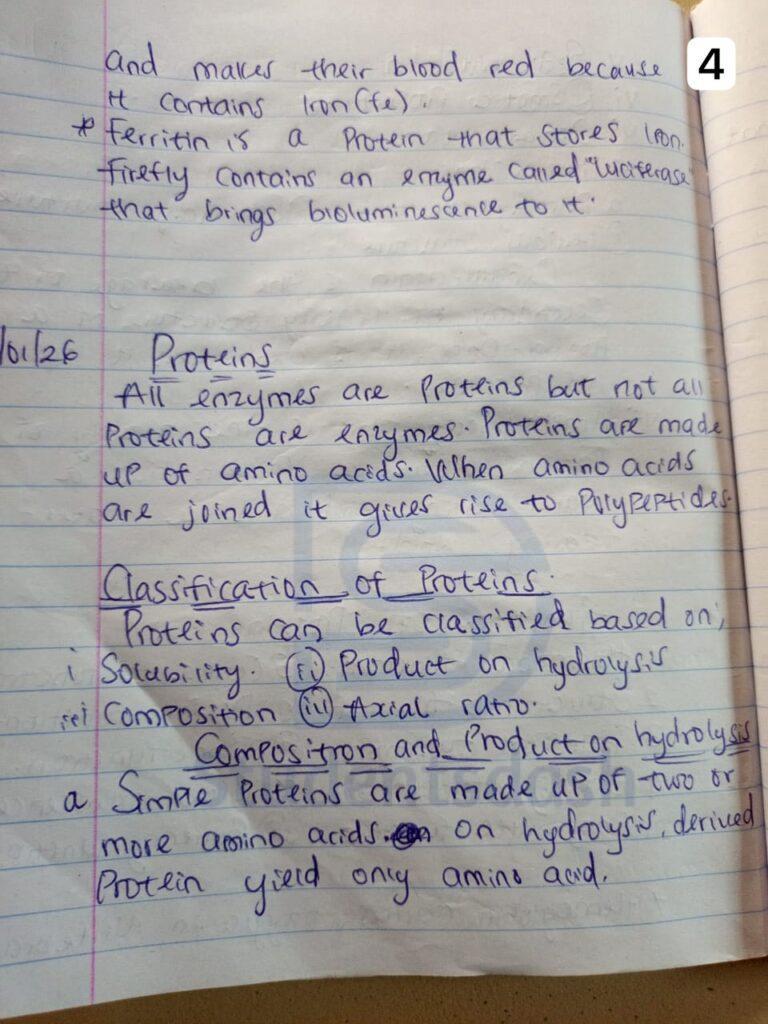 4
and makes their blood red because
it contains Iron (fe).
* Ferritin is a Protein that stores Iron.
Firefly contains an enzyme called "Luciferase"
that brings bioluminescence to it.
/01/26 Proteins
All enzymes are Proteins but not all
Proteins are enzymes. Proteins are made
up of amino acids. When amino acids
are joined it gives rise to Polypeptides.
Classification of Proteins.
Proteins can be classified based on;
i Solubility. (ii) Product on hydrolysis
iii Composition (iv) Axial ratio.
Composition and Product on hydrolysis
a Simple Proteins are made up of two or
more amino acids. on hydrolysis, derived
Protein yield only amino acid.